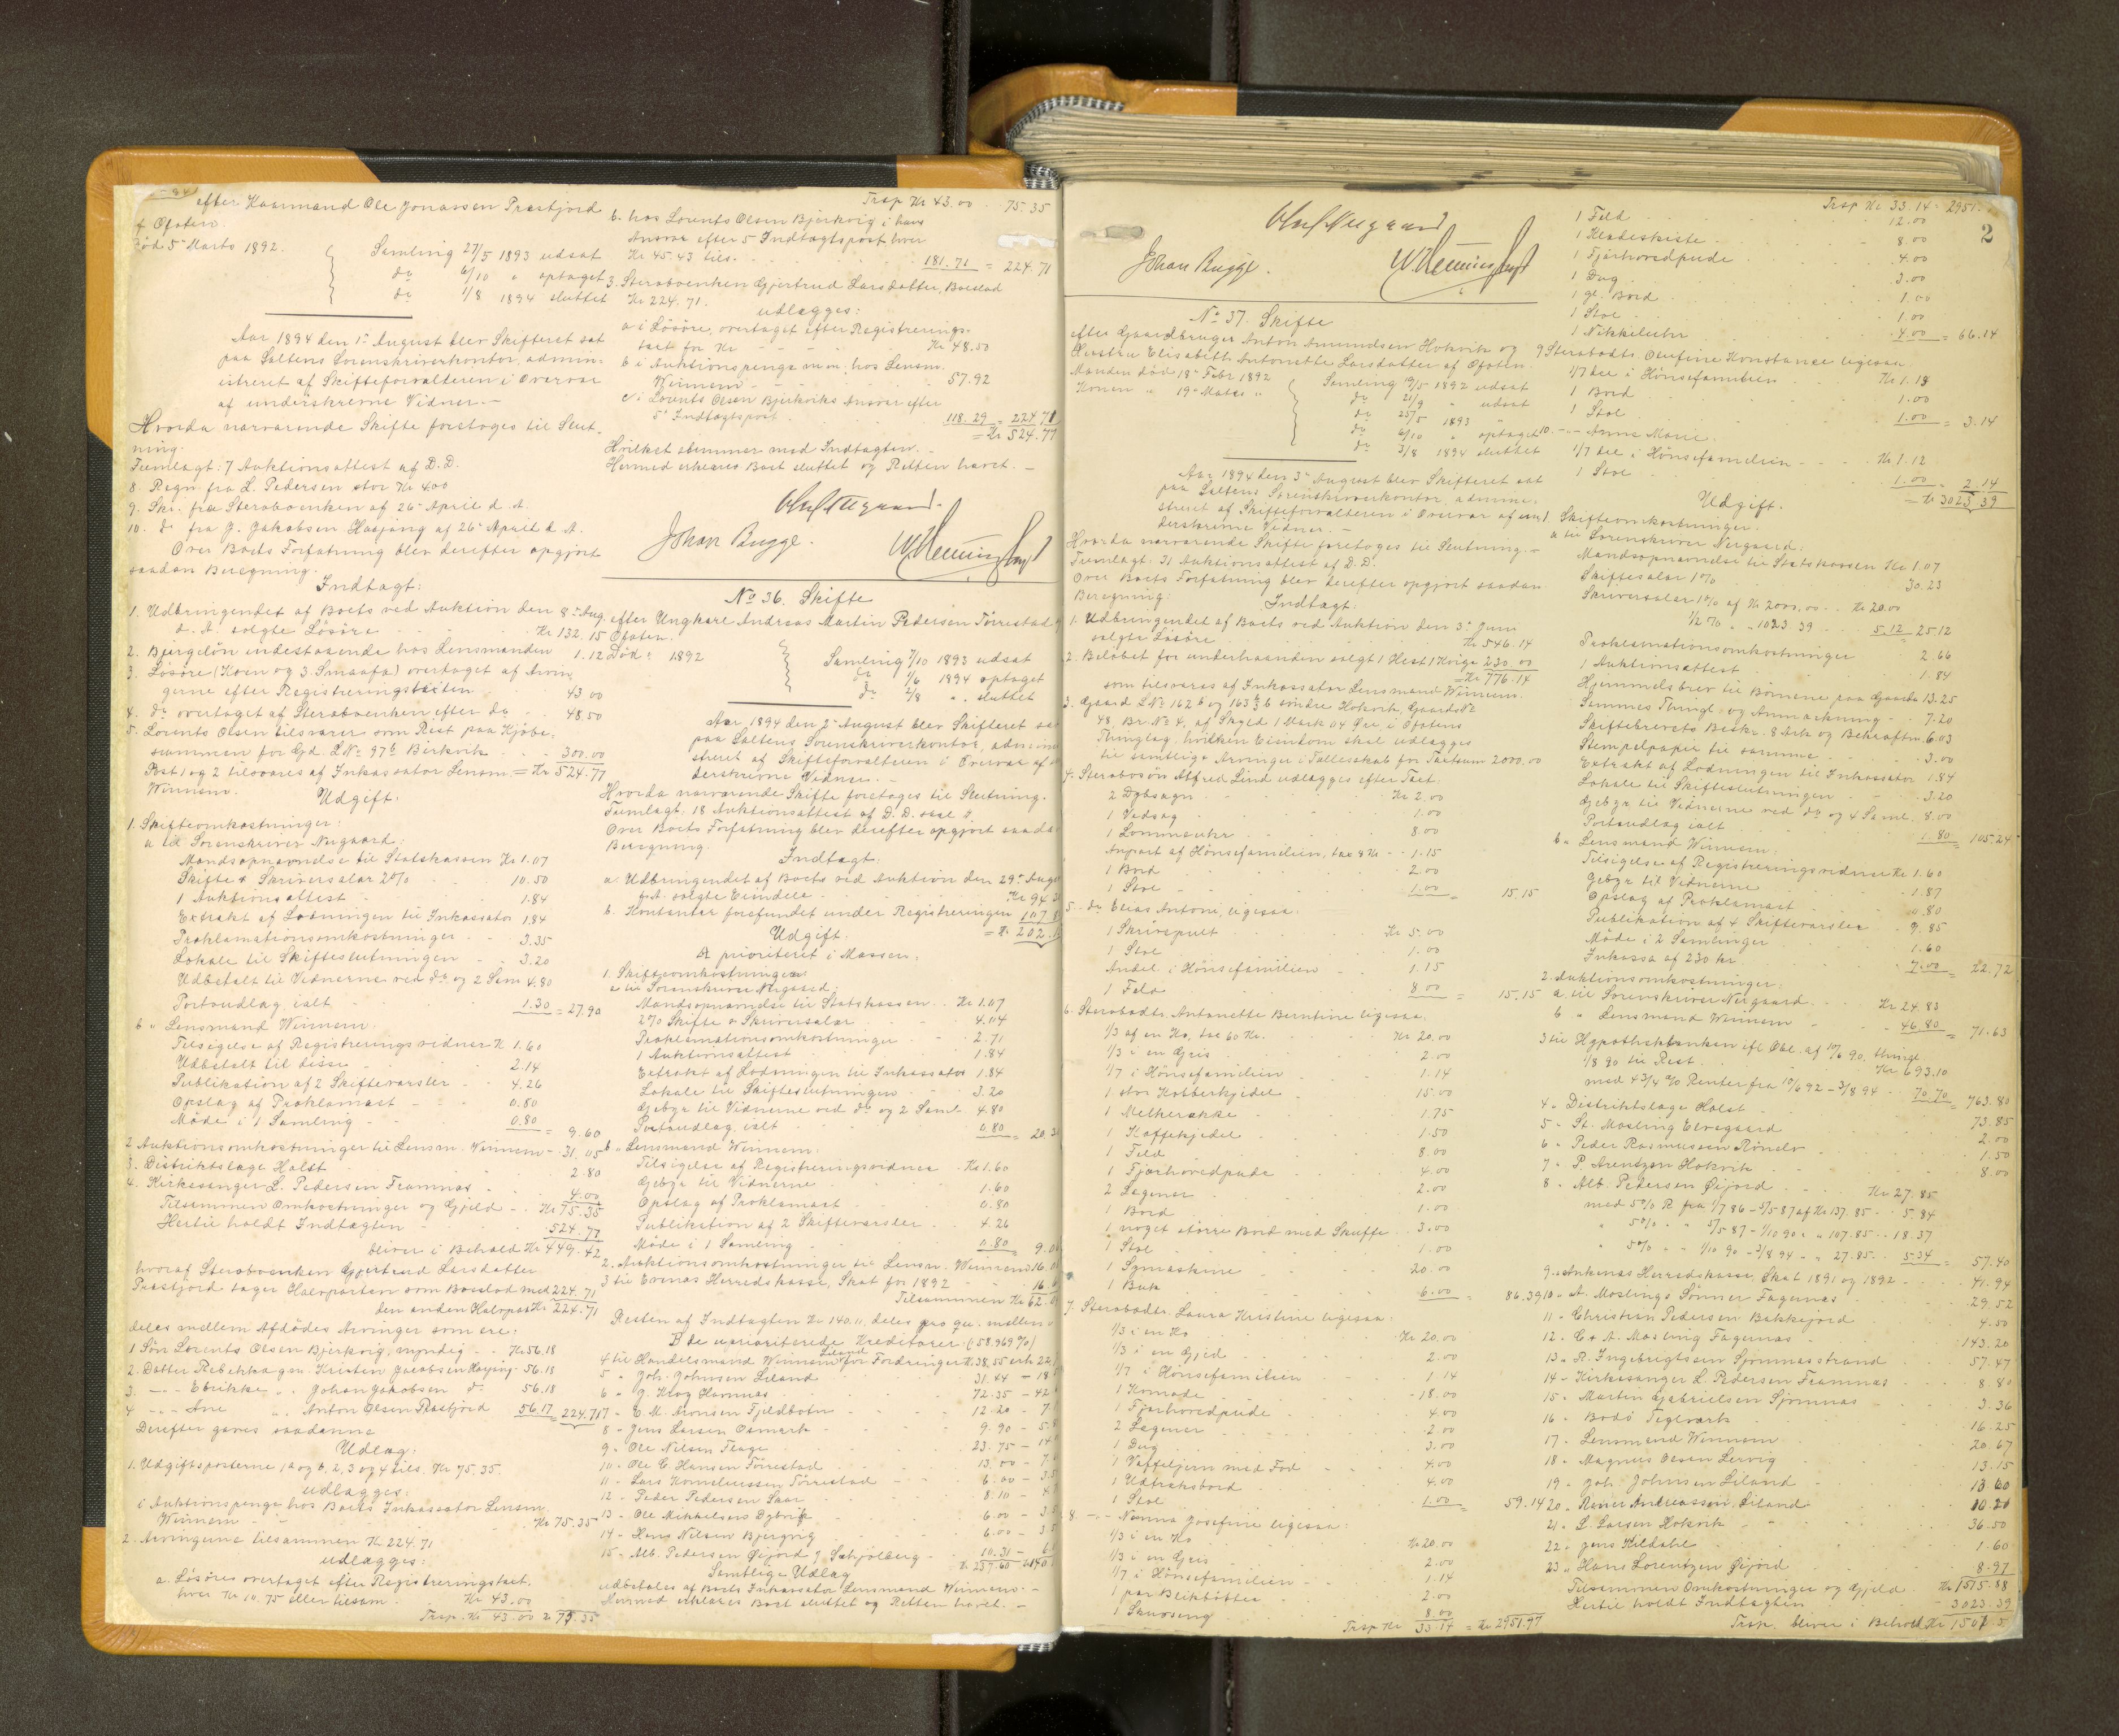 efter Kaarmand Ole Jonassen Præstjord
f Ofoten.
død 5 Marts 1892.
Samling 27/5 1893 udsat
do 6/10 " optaget
do 1/8 1894 sluttet
Aar 1894 den 1ste August blev Skifteret sat
paa Saltens Sorenskriverkontor, admin=
istreret af Skifteforvalteren i Overvær
af underskrevne Vidner.-
Hvorda nærværende Skifte foretoges til Slut=
ning.
Fremlagt: 7 Auktionsattest af D. D.
8. Regn. fra L. Pedersen stor Kr 4.00
9. Skr. fra Sterboenken af 26 April d. A.
10. do fra J. Jakobsen Haajang af 26 April d. A.
Over Boets Forfatning blev derefter opgjort
saadan Beregning.
Indtægt:
1. Udbringendet af Boets ved Auktion den 8de Aug.
d. A. solgte Løsøre Kr 132.15
2. Bjergeløn indestaaende hos Lensmanden 1.12
3. Løsøre (Koen og 3 Smaafæ) overtaget af Arvin
gerne efter Registreringstaxten 43.00
4. do overtaget af Sterboenken efter do 48.50
5. Lorents Olsen tilsvarer som Rest paa Kjøbe=
summen for Gd. L No 97b Birkvik 300.00
Post 1 og 2 tilsvares af Inkassator Lensm. = Kr 524.77
Winnem.
Udgift:
1. Skifteomkostninger:
a til Sorenskriver Nergaard:
Mandsopnævnelse til Statskassen Kr 1.07
Skifte & Skriversalær 2% 10.50
1 Auktionsattest 1.84
Extrakt af Lodningen til Inkassator 1.84
Proklamationsomkostninger 3.35
Lokale til Skifteslutningen 3.20
Udbetalt til Vidnerne ved do og 2 Sam 4.80
Portoudlæg ialt 1.30 = 27.90
b " Lensmand Winnem:
Tilsigelse af Registreringsvidner Kr 1.60
Udbetalt til disse 2.14
Publikation af 2 Skiftevarsler 4.26
Opslag af Proklamaet 0.80
Møde i 1 Samling 0.80 = 9.60
2. Auktionsomkostninger til Lensm. Winnem 31.05
3. Distriktslæge Holst 2.80
4. Kirkesanger L. Pedersen Framnæs 4.00
Tilsammen Omkostninger og Gjæld Kr 75.35
Hertil holdt Indtægten 524.77
bliver i Behold Kr 449.42
hvoraf Sterboenken Gjertrud Larsdatter
Præstjord tager Halvparten som Boeslod med 224.71
den anden Halvpart Kr 224.71
deles mellem Afdødes Arvinger som ere:
1 Søn Lorents Olsen Bjerkvig, myndig Kr 56.18
2. Datter Rebekka gm. Kristen Jacobsen Haajang 56.18
3. -"- Ebrikke " Johan Jakobsen do 56.18
4 -"- Ane " Anton Olsen Præstjord 56.17 = 224.71
Derefter gaves saadanne
Udlæg:
1. Udgiftsposterne 1a og b, 2, 3 og 4 tils. Kr 75.35
udlægges:
i Auktionspenge hos Boets Inkassator Lensm.
Winnem Kr 75.35
2. Arvingerne tilsammen Kr 224.71
udlægges:
a. Løsøre overtaget efter Registreringstaxt.
hver Kr 10.75 eller tilsam. Kr 43.00
Trsp. Kr 43.00 Kr 75.35
Trsp Kr 43.00 75.35
b. hos Lorents Olsen Bjerkvig i hans
Ansvar efter 5 Indtægtspost hver
Kr 45.43 tils. 181.71 = 224.71
3. Sterboenken Gjertrud Larsdatter, Boeslod
Kr 224.71.
udlægges:
a i Løsøre, overtaget efter Registrerings=
taxt for Kr Kr 48.50
b i Auktionspenge m. m. hos Lensm.
Winnem 57.92
c i Lorents Olsen Bjerkviks Ansvar efter
5te Indtægtspost 118.29 = 224.71
= Kr 524.77
Hvilket stemmer med Indtægten.
Hermed erklæres Boet sluttet og Retten hævet.
Johan Bugge.
No 36. Skifte
efter Ungkarl Andreas Martin Pedersen Tørrestad
Ofoten.
Død 1892
Samling 7/10 1893 udsat
do 1/6 1894 optaget
do 2/8 " sluttet
Aar 1894 den 2 August blev Skifteret sat
paa Saltens Sorenskriverkontor, admini
streret af Skifteforvalteren i Overvær af
derskrevne Vidner.-
Hvorda nærværende Skifte foretoges til Slutning.
Fremlagt: 18 Auktionsattest af D. D.
Over Boets Forfatning blev derefter opgjort saada
Beregning.
Indtægt:
a Udbringendet af Boets ved Auktion den 29de Aug
f. A. solgte Eiendele Kr 94
b. Kontanter forefundet under Registreringen 107
= Kr 202.
Udgift.
A prioriteret i Massen:
1. Skifteomkostninger
a til Sorenskriver Nergaard:
Mandsopnævnelse til Statskassen Kr 1.07
2% Skifte & Skriversalær 4.04
Proklamationsomkostninger 2.71
1 Auktionsattest 1.84
Extrakt af Lodningen til Inkassator 1.84
Lokale til Skifteslutningen 3.20
Gebyr til Vidnerne ved do og 2 Saml 4.80
Portoudlæg ialt 0.80 = 20.3
b " Lensmand Winnem:
Tilsigelse af Registreringsvidner Kr 1.60
Gebyr til Vidnerne 1.60
Opslag af Proklamaet 0.80
Publikation af 2 Skiftevarsler 4.26
Møde i 1 Samling 0.80 = 9.0
2. Auktionsomkostninger til Lensm. Winnem 16.0
3 til Evenæs Herredskasse, Skat for 1892 16.
Tilsammen Kr 62.
Resten af Indtægten Kr 140.11, deles pro qv. mellem
B de uprioriterede Kreditorer (58.969%)
4 til Handelsmand Winnem Liland for Fordringer Kr 38.55 erh 22
5 " Joh. Johnsen Liland 31.84 - 18
6 " J. Klog Hamnæs 72.35 - 42
7 - E. M. Aronsen Fjeldbotn 12.20 - 7
8 - Jens Larsen Osmark 9.90 - 5.8
9 - Ole Nilsen Flage 23.75 - 14
10 - Ole C. Hansen Tørrestad 13.00 - 7
11 - Lars Korneliussen Tørrestad 6.00 - 3.5
12 - Peder Pedersen Saar 8.10 - 4
13 - Ole Mikkelsens Dybvig 6.00 - 3.5
14 - Hans Nilsen Bjergvig 6.00 - 3.5
15 - Alb. Pedersen Øijord 10.31 - 6
Kr 237.60 Kr 140
Samtlige Udlæg
udbetales af Boets Inkassator Lensmand Winnem.-
Hermed erklæres Boet sluttet og Retten hævet.-
Johan Bugge.
No 37. Skifte
efter Gaardbruger Anton Amundsen Hokvik og
Hustru Elisabeth Antonette Larsdatter af Ofoten.
Manden død 18 Febr 1892
Konen " 19 Marts "
Samling 19/5 1892 udsat
do 21/9 " udsat
do 25/5 1893 "
do 6/10 " optaget
do 3/8 1894 sluttet
Aar 1894 den 3 August blev Skifteret sat
paa Saltens Sorenskriverkontor, admini=
streret af Skifteforvalteren i Overvær af un
derskrevne Vidner.-
Hvorda nærværende Skifte foretoges til Slutning.-
Fremlagt: 31 Auktionsattest af D. D.
Over Boets Forfatning blev derefter opgjort saadan
Beregning:
Indtægt:
1. Udbringendet af Boets ved Auktion den 3 Juni
solgte Løsøre Kr 546.14
2. Beløbet for underhaanden solgt 1 Hest 1 Kvige 230.00
= Kr 776.14
som tilsvares af Inkassator Lensmand Winnem.
3. Gaard L No 162b og 163b Hokvik, Gaards No
48, Br. No 4, af Skyld 1 Mark 04 Øre, i Ofotens
Thinglag, hvilken Eiendom skal udlægges
til samtlige Arvinger i Fællesskab for Taxtsum 2000.00
4. Sterbosøn Alfred Lind udlægges efter Taxt.
2 Dybsagn Kr 2.00
1 Vedsag 1.00
1 Lommeuhr 8.00
Anpart af Hønsefamilien, tax 8 Kr 1.15
1 Bord 2.00
1 Stol 1.00 = 15.15
5. do Elias Antoni, ligesaa:
1 Skrivepult Kr 5.00
1 Stol 1.00
Andel i Hønsefamilien 1.15
1 Feld 8.00 = 15.15
6. Sterbodtr. Antonette Berntine ligesaa:
1/3 af en Ko, tax 60 Kr. Kr 20.00
1/3 i en Gris 2.00
1/7 i Hønsefamilien 1.14
1 stor Kobberkjedel 15.00
1 Melkerække 1.75
1 Kaffekjedel 1.50
1 Feld 8.00
1 Fjærhovedpude 4.00
2 Lagener 2.00
1 Bord 1.00
1 noget større Bord med Skuffe 3.00
1 Stol 1.00
1 Symaskine 20.00
1 Buk 6.00 = 86.39
7. Sterbodtr. Laura Kristine ligesaa:
1/3 i en Ko Kr 20.00
1/3 i en Gjed 2.00
1/7 i Hønsefamilien 1.14
1 Komode 18.00
1 Fjærhovedpude 4.00
2 Lagener 2.00
1 Dug 3.00
1 Vaffeljern med Fod 4.00
1 Udtræksbord 4.00
1 Stol 1.00 = 59.14
8 -"- Nanna Josefine ligesaa:
1/3 i en Ko Kr 20.00
1/3 i en Gris 2.00
1/7 i Hønsefamilien 1.14
1 par Blikbøtter 2.00
1 Skuvseng 8.00
Trsp Kr 33.14 = Kr 2951.97
Trsp Kr 33.14 2951.
2
1 Feld 12.00
1 Klædeskiste 8.00
1 Fjærhovedpude 4.00
1 Dug 3.00
1 gl. Bord 1.00
1 Stol 1.00
1 Nikkeluhr 4.00 = 66.14
9 Sterbodtr. Olufine Konstance ligesaa
1/7 del i Hønsefamilien Kr 1.18
1 Bord 1.00
1 Stol 1.00 = 3.14
10. -"- Anna Marie.
1/7 del i Hønsefamilien Kr 1.12
1 Stol 1.00 = 2.14
= Kr 3023.39
Udgift.
1 Skifteomkostninger.
a til Sorenskriver Nergaard:
Mandsopnævnelse til Statskassen Kr 1.07
Skiftesalær 1% 30.23
Skriversalær 1% af Kr 2000.00 Kr 20.00
1/2 % " " 1023.39 5.12 = 25.12
Proklamationsomkostninger 2.66
1 Auktionsattest 1.84
Hjemmelsbrev til Børnene paa Gaarden 13.25
Sammes Thingl. og Anmærkning 7.20
Skiftebrevets Beskr. 8 Ark og Bekræftn. 6.03
Stempelpapir til samme 3.00
Extrakt af Lodningen til Inkassator 1.84
Lokale til Skifteslutningen 3.20
Gebyr til Vidnerne ved do og 4 Saml. 8.00
Portoudlæg ialt 1.80 = 105.24
b " Lensmand Winnem:
Tilsigelse af Registreringsvidner Kr 1.60
Gebyr til Vidnerne 1.87
Opslag af Proklamaet 0.80
Publikation af 4 Skiftevarsler 9.85
Møde i 2 Samlinger 1.60
Inkassa af 230 kr 7.00 = 22.72
2. Auktionsomkostninger:
a til Sorenskriver Nergaard Kr 24.83
b " Lensmand Winnem 46.80 = 71.63
3 til Hypothekbanken ifl. Obl. af 10/6 90, thingl
1/8 90 til Rest Kr 693.10
med 4 3/4 % Renter fra 10/6 92 - 3/8 94 70.70 = 763.80
4 " Distriktslæge Holst 73.85
5 " St. Mosling Elvegaard 2.00
6 " Peder Rasmussen Rånelv 1.50
7 " P. Arentzen Hokvik 8.00
8 " Alb. Pedersen Øijord Kr 27.85
med 5% R. fra 1/7 86 - 5/5 87 af Kr 137.85 5.84
" 5% " " 5/5 87 - 1/10 90 " " 107.85 18.37
" 5% " " 1/10 90 - 3/8 94 " " 27.85 5.34 = 57.40
9 " Ankenes Herredskasse, Skat 1891 og 1892 41.94
10 " A. Moslings Sønner Fagernæs 29.52
11 - Christian Pedersen Bakkejord 4.50
12. C. & A. Mosling Fagernæs 143.20
13 " R. Ingebrigtsen Sjømnæsstrand 57.47
14 - Kirkesanger L. Pedersen Framnæs 8.80
15 - Martin Gabrielsen Sjømnæs 3.36
16 - Bodø Teglværk 16.25
17 - Lensmand Winnem 20.67
18 - Magnus Olsen Lervig 13.15
19 - Joh. Johnsen Liland 13.60
20 " Reiner Andreassen, Liland 10.20
21 - L. Larsen Hokvik 36.50
22 - Jens Kildahl 1.60
23 " Hans Lorentzen Øijord 8.97
Tilsammen Omkostninger og Gjæld Kr 1515.88
Hertil holdt Indtægten 3023.39
Trsp. bliver i Behold Kr 1507.5